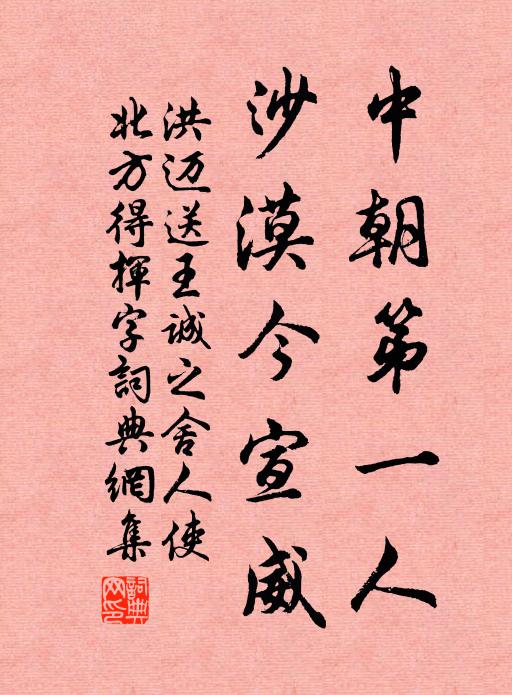 中朝第一人
沙漠今宣威
洪迈送王誠之舍人使
北方得揮字詞典網集
詞典网印